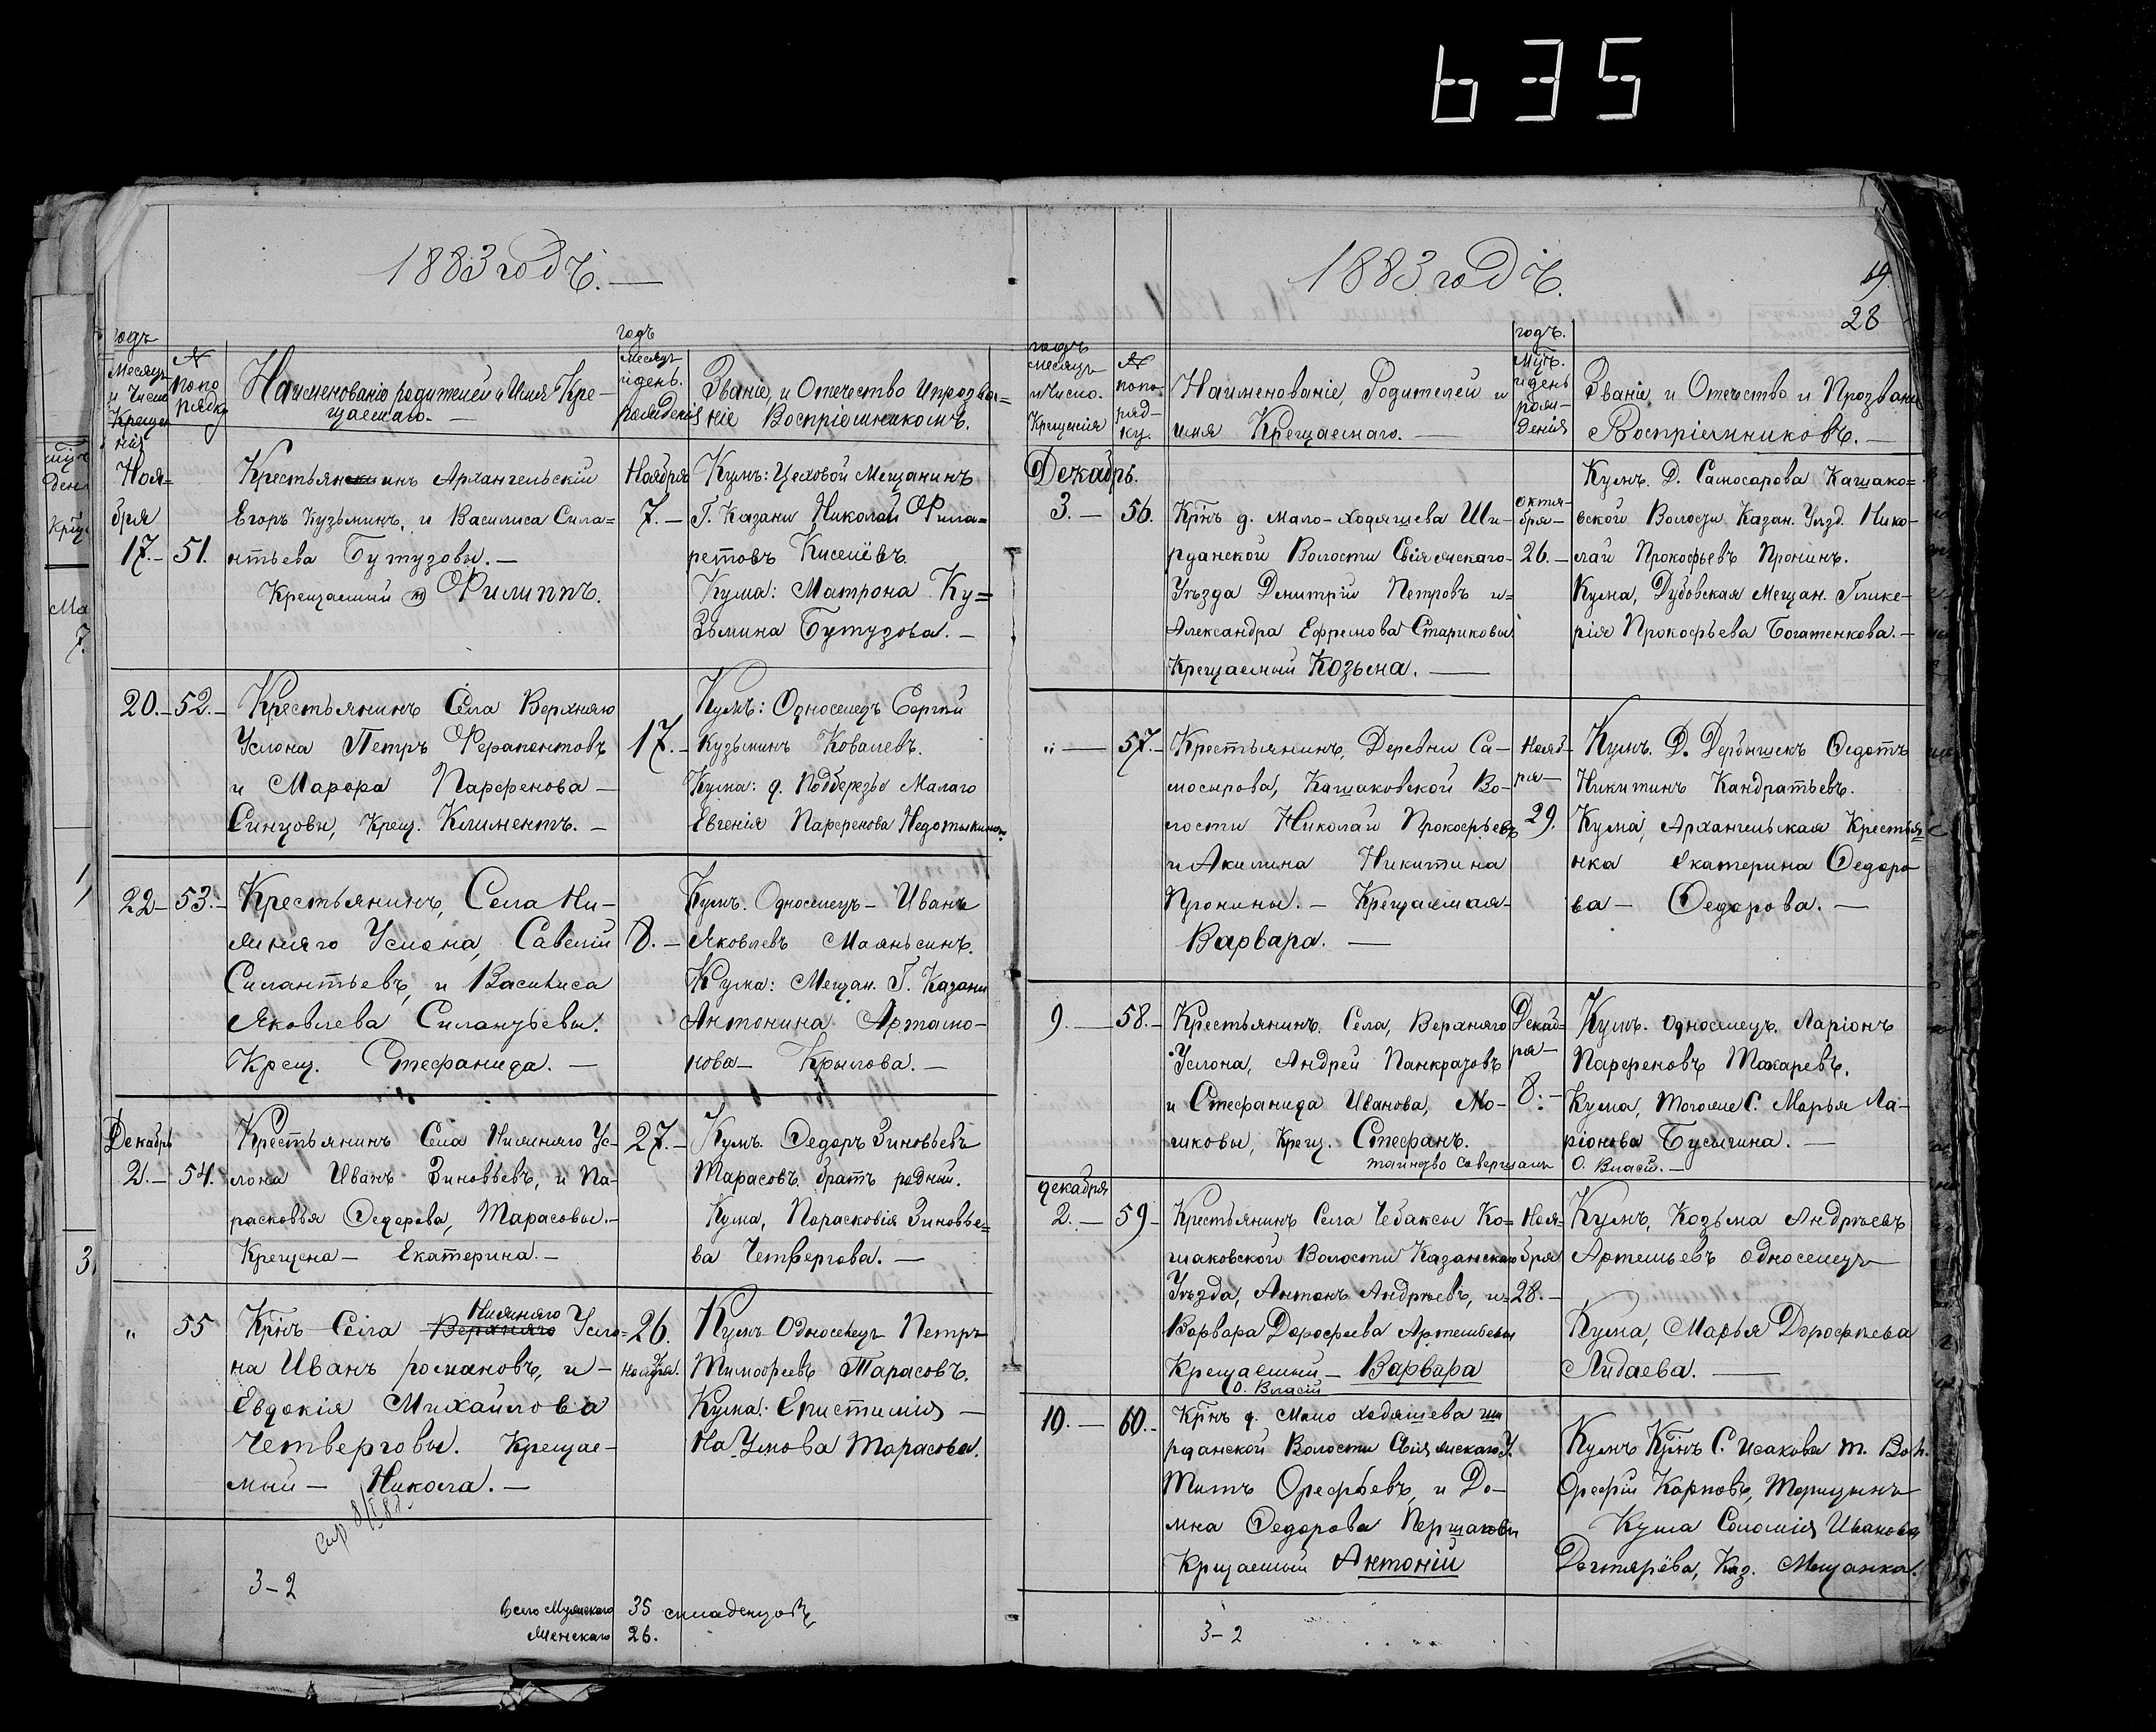 635
1883 годъ. —
годъ
Месяцъ
и Число
Крещен
нія
№
попо
рядку
Наименованіе родителей и Имя Кре-
щаемаго. —
годъ
месяцъ
и день.
рожденія
Званіе, и Отечество и прозва=
ніе Воспріемникомъ.
Ноя=
бря
17.— 51.
Крестьянинъ Архангельскій
Егоръ Кузьминъ, и Василиса Сила=
нтьева Бутузовы. —
Крещаемый Филиппъ.
Ноября
7. —
Кумъ: Цеховой Мещанинъ
Г. Казани Николай Фила=
ретовъ Киселёвъ.
Кума: Матрона Ку=
зьмина Бутузова. —
20.— 52.—
Крестьянинъ Села Верхняго
Услона Петръ Ферапонтовъ
и Марфа Парфенова —
Синцовы, Крещ. Климентъ. —
17. —
Кумъ: Односелецъ Сергій
Кузьминъ Ковалевъ.
Кума: д. Подберезье Малаго
Евгенія Парфенова
22— 53.—
Крестьянинъ, Села Ни-
жняго Услона, Савелій
Силантьевъ, и Василиса
Яковлева Силантьевы.
Крещ. Стефанида. —
8. —
Кумъ. Односелецъ — Иванъ
Яковлевъ
Кума: Мещан. Г. Казани
Антонина Артамо-
нова — Крылова. —
Декабрь
2.— 54.
Крестьянинъ Села Нижняго Ус-
лона Иванъ Зиновьевъ, и Па-
расковья Федорова, Тарасовы. —
Крещена — Екатерина. —
27. —
Кумъ. Федоръ Зиновьевъ
Тарасовъ братъ родный.
Кума, Парасковія Зиновье=
ва Четвергова. —
„ 55
Крнъ Села Верхняго Нижняго Усло=
на Иванъ романовъ, и —
Евдокія Михайлова
Четверговы. Крещае-
мый — Никола. —
26.
ноября.
Кумъ Односелецъ Петръ
Тимофеевъ Тарасовъ.
Кума: Епистимія —
Наумова Тарасова.
3-2
всего Мужскаго 35 младенцовъ
Женскаго 26.
1883 годъ.
19.
28
годъ
месяцъ
и Число.
Крещенія
№
попо-
ряд-
ку.
Наименованіе, Родителей и
имя Крещаемаго. —
годъ.
Мцъ.
и день
рож-
денія
Званіе и Отечество и Прозвані
Воспріемниковъ. —
Декабрь.
3. — 56.
Крнъ д. Мало-Ходяшева Ши-
рданской Волости Свіяжскаго-
Уѣзда Димитрій Петровъ и=
Александра Ефремова Стариковы
Крещаемый Козьма. —
октя-
бря —
26. —
Кумъ. Д. Самосарова Кашако=
вской Волости Казан. Уѣзд. Нико-
лай Прокофьевъ Пронинъ.
Кума, Дубовская Мещан. Глике-
рія Прокофьева Богатенкова. —
„ — 57.—
Крестьянинъ, Деревни Са-
мосырова, Кашаковской Во-
лости Николай Прокофьевъ
и Акилина Никитина
Пронины. — Крещаемая-
Варвара. —
Нояб-
ря —
29.
Кумъ. Д. Дербышекъ Федотъ
Никитинъ Кандратьевъ.
Кума, Архангельская Крестья
нка Екатерина Федоро
ва — Федорова. —
9. — 58.—
Крестьянинъ. Села, Верхняго
Услона, Андрей Панкратовъ
и Стефанида Иванова, Мо-
шковы, Крещ. Стефанъ.
таинство Совершалъ О. Власій. —
Декаб-
ря —
8. —
Кумъ. односелецъ. Ларіонъ
Парфеновъ Макаревъ.
Кума, тогоже С. Марья Ла-
ріонова Бусыгина. —
декабря
2. — 59-
Крестьянинъ Села Чебаксы Ка=
шаковской Волости Казанскаго
Уѣзда, Антонъ Андрѣевъ, и=
Варвара Дорофеева Артемьевы
Крещаемый — Варвара
О. Власій
Ноя=
бря
28. —
Кумъ, Козьма Андрѣевъ
Артемьевъ односелецъ
Кума, Марья Дорофѣева
Лидаева. —
10. — 60.—
Крнъ д. Мало Ходяшева Ши
рданской Волости Свіяжскаго У.
Титъ Орефьевъ, и До-
мна Федорова
Крещаемый Антоній
Кумъ Крнъ С. Исакова т. Вол.
Орефій Карповъ,
Кума Соломія Иванова
Дегтярёва, Каз. Мещанка.
3-2